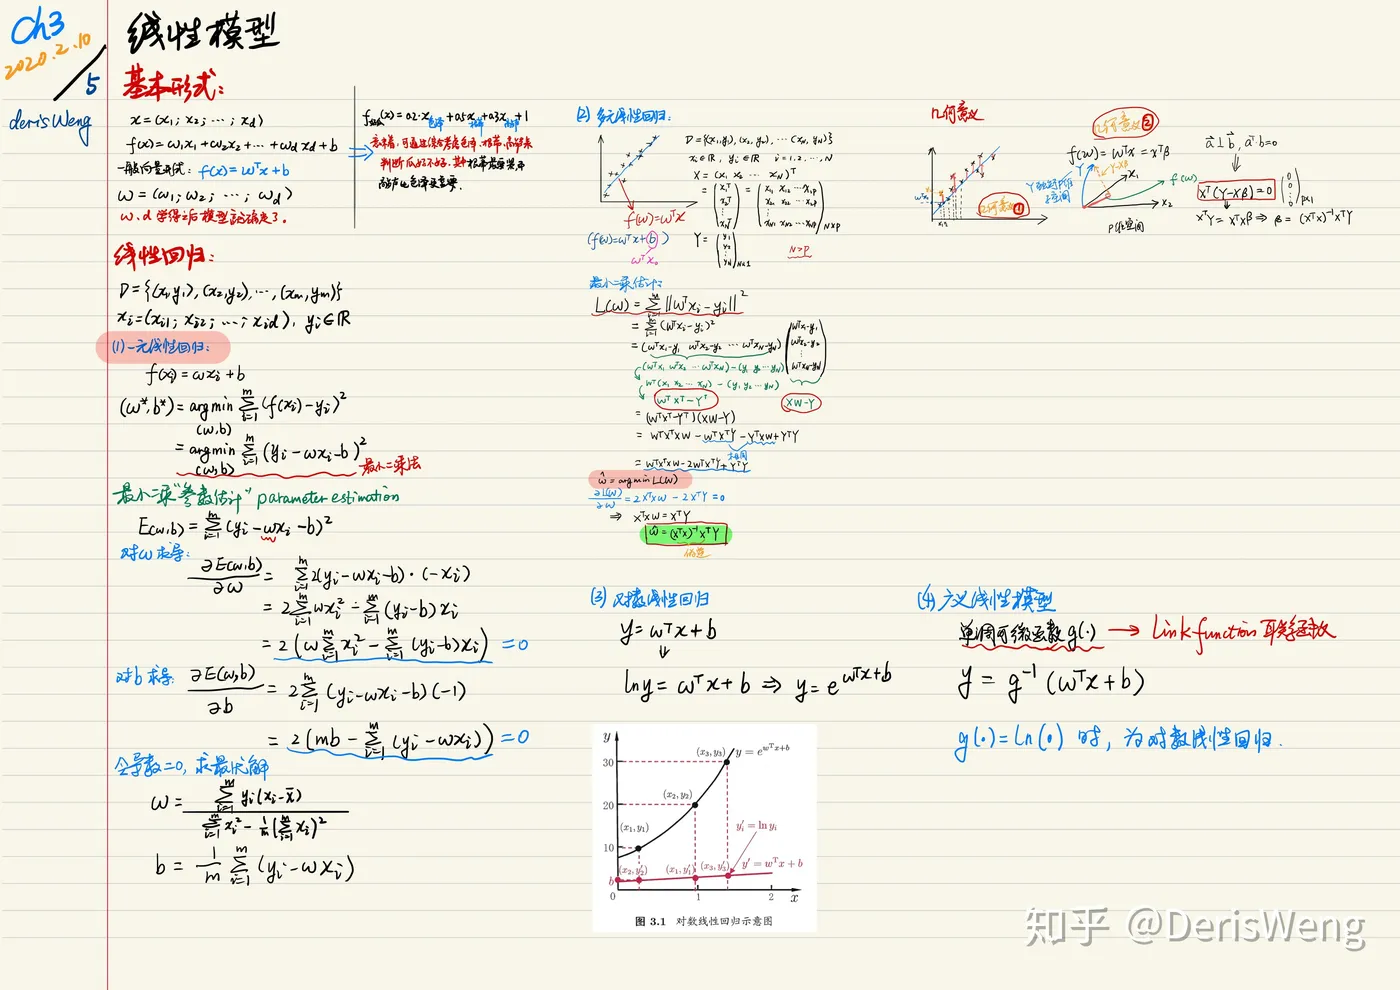 Ch3
2020.2.10
/5
derisWeng
线性模型
基本形式:
x=(x₁; x₂; ⋯; x_d)
f(x)=ω₁x₁+ω₂x₂+⋯+ω_d x_d+b
一般向量形式: f(x)=ωᵀx+b
ω=(ω₁; ω₂; ⋯; ω_d)
ω.d 学得之后模型就确定了。
f(x)=0.2·x色泽+0.5·x根蒂+0.3x敲声+1
线性回归:
D={(x₁,y₁),(x₂,y₂),⋯,(xₘ,yₘ)}
xᵢ=(xᵢ₁; xᵢ₂; ⋯; xᵢd), yᵢ∈ℝ
(1)一元线性回归:
f(xᵢ)=ωxᵢ+b
(ω*,b*)=argmin Σᵢ₌₁ᵐ (f(xᵢ)-yᵢ)²
(ω,b)
=argmin Σᵢ₌₁ᵐ (yᵢ-ωxᵢ-b)²
(ω,b)
最小二乘法
最小二乘"参数估计" parameter estimation
E(ω,b)=Σᵢ₌₁ᵐ (yᵢ-ωxᵢ-b)²
对ω求导:
∂E(ω,b)/∂ω = Σᵢ₌₁ᵐ 2(yᵢ-ωxᵢ-b)·(-xᵢ)
=2Σᵢ₌₁ᵐ ωxᵢ²-Σᵢ₌₁ᵐ (yᵢ-b)xᵢ
=2(ωΣᵢ₌₁ᵐ xᵢ²-Σᵢ₌₁ᵐ (yᵢ-b)xᵢ)=0
对b求导:
∂E(ω,b)/∂b = 2Σᵢ₌₁ᵐ (yᵢ-ωxᵢ-b)(-1)
=2(mb-Σᵢ₌₁ᵐ (yᵢ-ωxᵢ))=0
令导数=0, 求最优解
ω= Σᵢ₌₁ᵐ yᵢ(xᵢ-x̄) / Σᵢ₌₁ᵐ xᵢ²-1/m(Σᵢ₌₁ᵐ xᵢ)²
b= 1/m Σᵢ₌₁ᵐ (yᵢ-ωxᵢ)
(2) 多元线性回归:
f(ω)=ωᵀx
(f(ω)=ωᵀx+b)
ωᵀx₀
D={(x₁,y₁),(x₂,y₂),⋯(x_N,y_N)}
xᵢ∈ℝ, yᵢ∈ℝ i=1,2,⋯,N
X=(x₁ x₂ ⋯ x_N)ᵀ
=(x₁ᵀ x₂ᵀ ⋮ x_Nᵀ)=(x₁₁ x₁₂ ⋯x₁p x₂₁ x₂₂ ⋯x₂p ⋮ x_N₁ x_N₂⋯x_Np)N×p
Y=(y₁ y₂ ⋮ y_N)N×1
N>p
最小二乘估计:
L(ω)=Σᵢ₌₁ᴺ ||ωᵀxᵢ-yᵢ||²
=Σᵢ₌₁ᴺ (ωᵀxᵢ-yᵢ)²
=(ωᵀx₁-y₁ ωᵀx₂-y₂ ⋯ ωᵀx_N-y_N)(ωᵀx₁-y₁ ωᵀx₂-y₂ ⋮ ωᵀx_N-y_N)
(ωᵀx₁ ωᵀx₂⋯ωᵀx_N)-(y₁ y₂⋯y_N)
ωᵀ(x₁ x₂⋯x_N)-(y₁ y₂⋯y_N)
ωᵀXᵀ-Yᵀ
Xω-Y
=(ωᵀXᵀ-Yᵀ)(Xω-Y)
=ωᵀXᵀXω-ωᵀXᵀY-YᵀXω+YᵀY
相同
=ωᵀXᵀXω-2ωᵀXᵀY+YᵀY
ω̂=argmin L(ω)
∂L(ω)/∂ω=2XᵀXω-2XᵀY=0
⇒ XᵀXω=XᵀY
ω̂=(XᵀX)⁻¹XᵀY
伪逆
几何意义
几何意义①
几何意义②
f(ω)=ωᵀx=xᵀβ
Y
Y-Xβ
x₁
x₂
f(ω)
p维空间
a⊥b, aᵀ·b=0
Xᵀ(Y-Xβ)=0 (0 0 ⋮ 0)p×1
XᵀY=XᵀXβ⇒β=(XᵀX)⁻¹XᵀY
(3) 对数线性回归
y=ωᵀx+b
ln y=ωᵀx+b⇒y=e^(ωᵀx+b)
y
30
20
10
b
0
1
2
x
(x₃,y₃)
y=e^(wᵀx+b)
(x₂,y₂)
(x₁,y₁)
y′ᵢ=ln yᵢ
(x₂,y′₂)
(x₁,y′₁)
(x₃,y′₃)
y′=wᵀx+b
图 3.1 对数线性回归示意图
(4) 广义线性模型
单调可微函数g(·) → Link function 联系函数
y=g⁻¹(ωᵀx+b)
g(·)=ln(·) 时, 为对数线性回归.
知乎 @DerisWeng